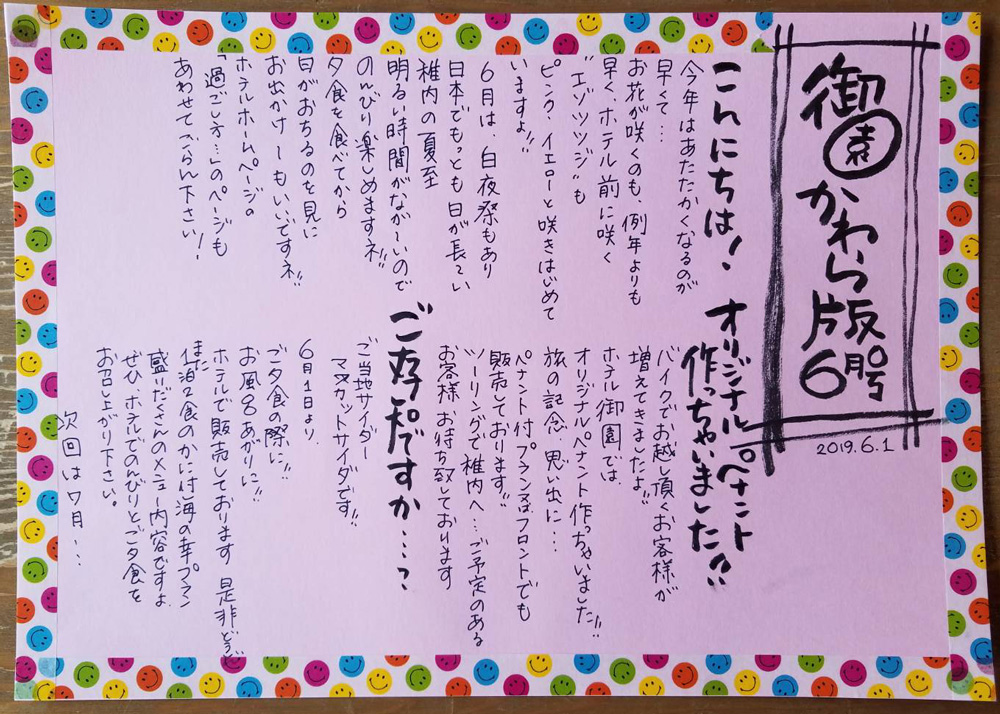 御園かわら版6月号
2019.6.1
こんにちは!
今年はあたたかくなるのが
早くて…
お花が咲くのも、例年よりも
早く、ホテル前に咲く
"エゾツツジ"も
ピンク、イエローと咲きはじめて
いますよ!!
6月は、白夜祭もあり
日本でもっとも日が長い
稚内の夏至
明るい時間がなが〜いので
のんびり楽しめますネ!!
夕食を食べてから
日がおちるのを見に
お出かけーもいいですネ!!
ホテルホームページの
「過ごし方…」のページも
あわせてごらん下さい!
オリジナルペナント
作っちゃいました!!
バイクでお越し頂くお客様が
増えてきましたよ!!
ホテル御園では、
オリジナルペナント作っちゃいました!!
旅の記念、思い出に…
ペナント付プラン又はフロントでも
販売しております!!
ツーリングで稚内へ…ご予定のある
お客様お待ち致しております
ご存知ですか…?
ご当地サイダー
マスカットサイダです!!
6月1日より、
ご夕食の際に!!
お風呂あがりに!!
ホテルで販売しております 是非どうぞ
また
1泊2食のかに付海の幸プラン
盛りだくさんのメニュー内容ですよ
ぜひホテルでのんびりとご夕食を
お召し上がり下さい。
次回は7月…